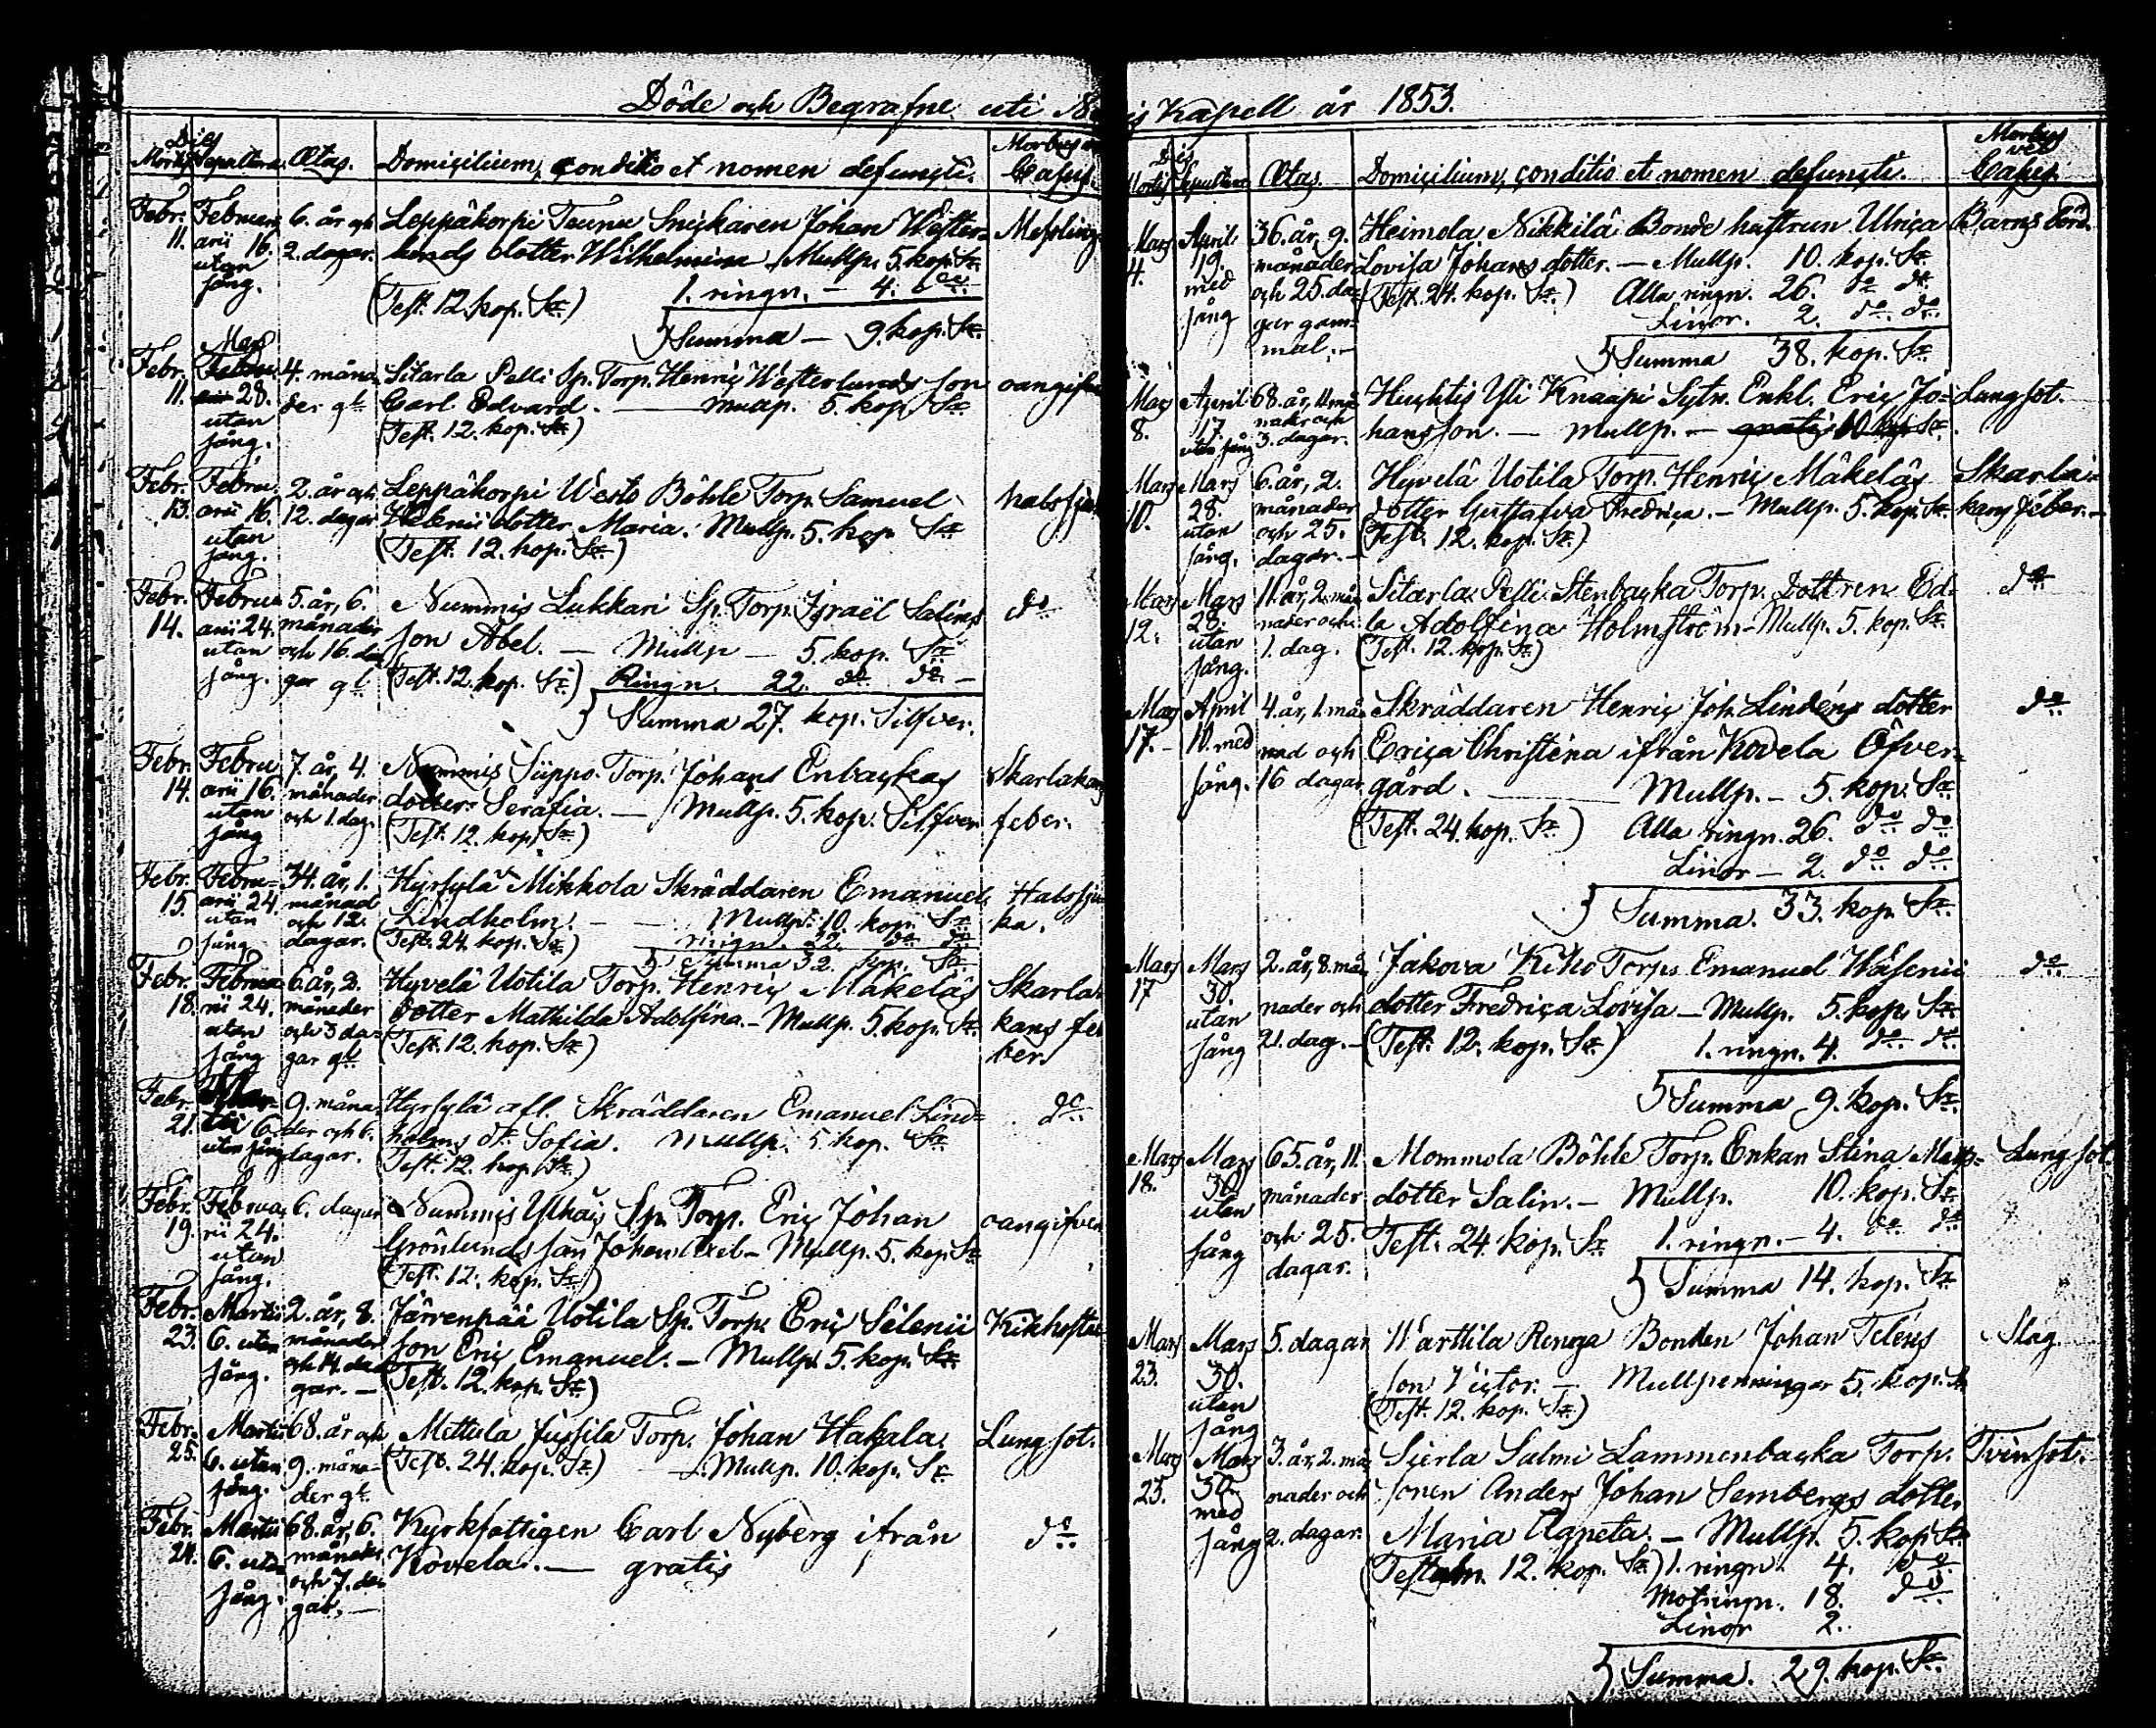 Döde och Begrafne uti
is Kapell år 1853.
Dies
Mortis Sepulturæ Ætas. Domicilium, conditio et nomen defuncti. Morbus
Casus.
Febr. Februa- 6. år och Leppäkorpi Teunu Snickaren Johan Wester-
11. arii 16. 2. dagar. lunds dotter Wilhelmina Mullp. 5. kop. Sr.
utan (Test. 12. kop. Sr.) 1. ringn. – 4. do
sång. Summa – 9. kop. Sr.
Mars
Febr. 4. måna- Sitarla Pelli Sp. Torp. Henric Westerlunds son
11. 28. der gl. Carl Edvard. — Mullp. 5. kop. Sr.
utan (Test. 12. kop. Sr.)
sång.
Febr. Febru- 2. år och Leppäkorpi Westo Böhle Torp. Samuel
13. arii 16. 12. dagar Helenii dotter Maria. Mullp. 5. kop Sr.
utan (Test. 12. kop. Sr.)
sång.
Febr. Febru- 5. år, 6. Nummis Lukkari Sp. Torp. Israël Salins do
14. arii 24. månader son Abel. — Mullp — 5. kop. Sr.
utan och 16. da- (Test. 12. kop. Sr.) Ringn. 22. do do –
sång. gar gl. Summa 27. kop. Silfver.
Febr. Febru- 7. år, 4. Nummis Süppo Torp. Johans Enbackas Skarlakans
14. arii 16. månader dotter Serafia. — Mullp. 5. kop. Silfver feber.
utan och 1. dag. (Test. 12. kop. Sr.)
sång
Febr. Febru- 34. år, 1. Hyrsylä Mikkola Skräddaren Emanuel Halssju-
15. arii 24. månad Lindholm. — Mullp. 10. kop. Sr. ka.
utan och 12. (Test. 24. kop. Sr.) ringn. 22. do do
sång dagar. Summa 32. kop. Sr.
Febr. Februa- 6. år, 2. Hyvelä Uotila Torp. Henric Mäkeläs Skarla-
18. rii 24. månader dotter Mathilda Adolfina. – Mullp. 5. kop. Sr. kans fe-
utan och 3 da- (Test. 12. kop. Sr.) ber.
sång gar gl.
Febr. 9. måna- Hyrsylä afl. Skräddaren Emanuel Lind- do
21. 6. der och 6. holms dr. Sofia. Mullp. 5 kop. Sr.
utan sång dagar. (Test. 12. kop. Sr.)
Febr. Februa- 6. dagar Nummis Sp. Torp. Eric Johan oangifven
19. rii 24. Grönlunds son Johan Axel – Mullp. 5. kop. Sr.
utan (Test. 12. kop. Sr.)
sång.
Febr. Martii 2. år, 8. Järvenpää Uotila Sp. Torp. Eric Selenii Kikhosta
23. 6. utan månader son Eric Emanuel. – Mullp. 5. kop. Sr.
sång. och 14. da- (Test. 12. kop. Sr.)
gar. –
Febr. Martii 68. år och Mettula Jussila Torp. Johan Hakala. Lungsot.
25. 6. utan 9. måna- (Test. 24. kop. Sr.) – Mullp. 10. kop. Sr.
sång. der gl.
Febr. Martii 68. år, 6. Kyrkfattigen Carl Nyberg ifrån do
24. 6. utan månader Kovela. — gratis
sång. och 7. da-
gar. —
Dies
Mortis Sepulturæ Ætas. Domicilium, conditio et nomen defuncti. Morbus
vel
Casus.
Mars April 36. år, 9. Heimola Nikkilä Bonde hustrun Ulrica Barns börd.
4. 19. månader Lovisa Johans dotter. — Mullp. 10. kop. Sr.
med och 25. da- (Test. 24. kop. Sr.) Alla ringn. 26. do do
sång gar gam- Linor. 2. do do
mal. – Summa 38. kop. Sr.
Mars April 68. år, 11. må- Huhtis Yli Knaapi Sytn. Enkl. Eric Jo- Lungsot.
8. 17. nader och hansson. — Mullp. – gratis 10 kop Sr.
utan sång 3. dagar.
Mars Mars 6. år, 2. Hyvelä Uotila Torp. Henric Mäkeläs Skarla-
10. 28. månader dotter Gustafva Fredrica. – Mullp. 5. kop. Sr. kans feber. –
utan och 25. (Test. 12. kop. Sr.)
sång. dagar. –
Mars Mars 11. år, 2. må- Sitarla Pelli Stenbacka Torp. Dottren Ed- do
12. 28. nader och la Adolfina Holmström – Mullp. 5. kop. Sr.
utan 1. dag. (Test. 12. kop. Sr.)
sång.
Mars April 4. år, 1. må- Skräddaren Henric Joh. Lindéns dotter do
17. – 10. med nad och Erica Christina ifrån Kovela Öfver-
sång. 16 dagar gård. — Mullp. – 5. kop. Sr.
(Test. 24. kop. Sr.) Alla ringn. 26. do do
Linor – 2. do do
Summa. 33. kop. Sr.
Mars Mars 2. år, 8. må- Jakova Kiho Torps Emanuel Wasenii do
17 30. nader och dotter Fredrica Lovisa – Mullp. 5. kop. Sr.
utan 21. dag. – (Test. 12. kop. Sr.) 1. ringn. 4. do do
sång Summa 9. kop. Sr.
Mars Mars 65. år, 11. Mommola Böhle Torp. Enkan Stina Matts- Lungsot.
18. 30. månader dotter Salin. – Mullp. 10. kop. Sr.
utan och 25. Test. 24. kop. Sr. 1. ringn. – 4. do do
sång dagar. Summa 14. kop. Sr.
Mars Mars 5. dagar Warttila Renga Bonden Johan Teléns Slag.
23. 30. son Victor. — Mullpenningar 5. kop. Sr.
utan (Test. 12. kop. Sr.)
sång
Mars Mars 3. år, 2. må- Sierla Salmi Lammenbacka Torp. Tvinsot.
25. 30. nader och sonen Anders Johan Sembergs dotter
med 2. dagar. Maria Agneta. – Mullp. 5. kop. Sr.
sång (Testam. 12. kop. Sr.) 1. ringn. 4. do
Motringn. 18. do
Linor 2.
Summa. 29. kop. Sr.